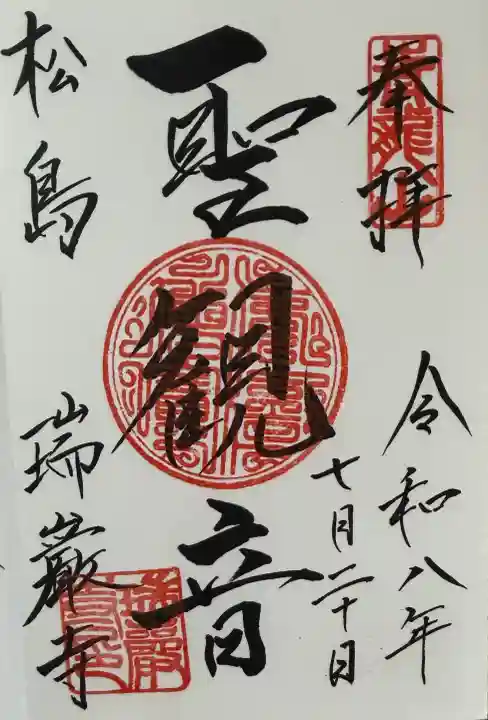 奉拝
令和八年
七月二十日
聖観音
松島
瑞巌寺